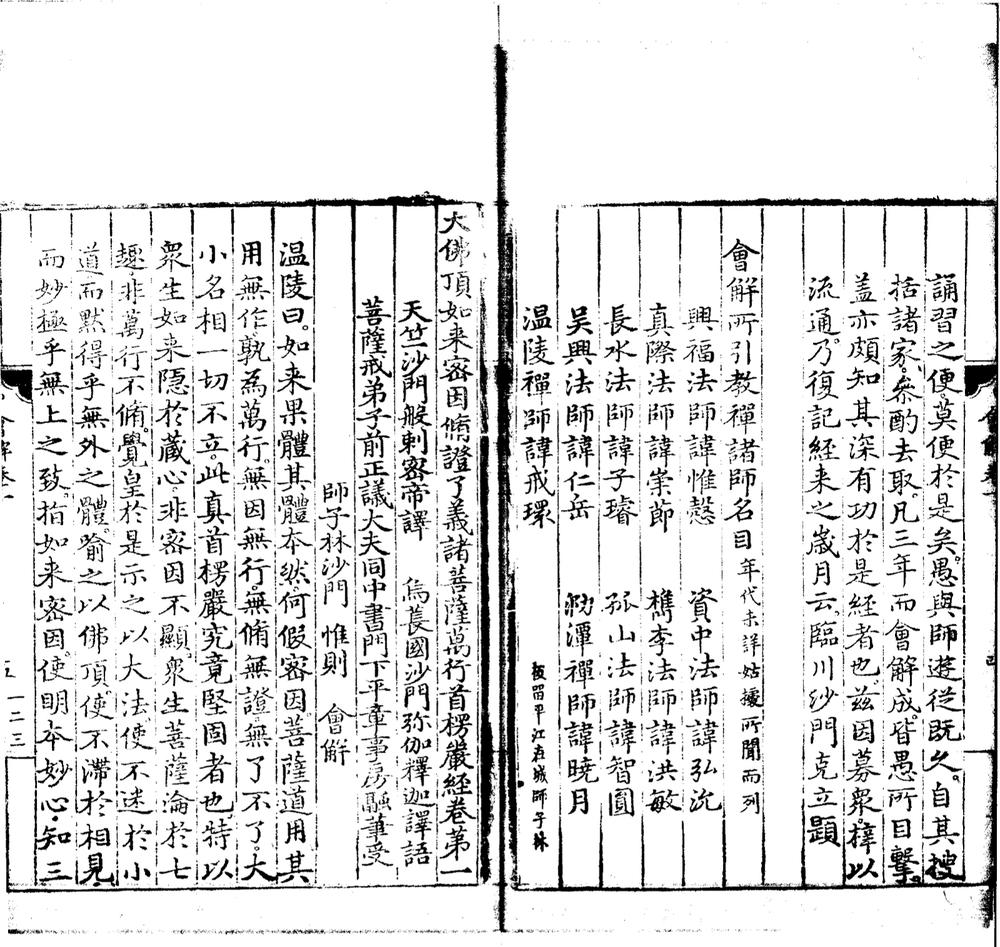 誦習之便莫便於是矣愚與師遊從既久自其摉
括諸家叅酌去取凡三年而會解成皆愚所目擊
盖亦頗知其深有功於是経者也兹因募衆梓以
流通乃復記経来之歳月云臨川沙門克立題
會解所引教禪諸師名目 年代未詳姑據所聞而列
興福法師諱惟慤 資中法師諱弘沇
真際法師諱崇節 檇李法師諱洪敏
長水法師諱子璿 孤山法師諱智圓
吴興法師諱仁岳 泐潭禪師諱曉月
温陵禪師諱戒環
板留平江在城師子林
大佛頂如来密因脩證了義諸菩薩萬行首楞嚴経卷第一
天竺沙門般剌密帝譯 烏萇國沙門弥伽釋迦譯語
菩薩戒弟子前正議大夫同中書門下平章事房融筆受
師子林沙門 惟則 會解
温陵曰。如来果體其體本然。何假密因菩薩道用其
用無作孰為萬行。無因無行。無脩無證。無了不了。大
小名相一切不立。此真首楞嚴究竟堅固者也。特以
衆生如来隱於藏心。非密因不顯。衆生菩薩淪於七
趣。非萬行不脩。覺皇於是示之以大法使不迷於小
道而默得乎無外之體。喻之以佛頂。使不滯於相見
而妙極乎無上之致。指如来密因。使明本妙心。知三
會解卷一
五
一二三